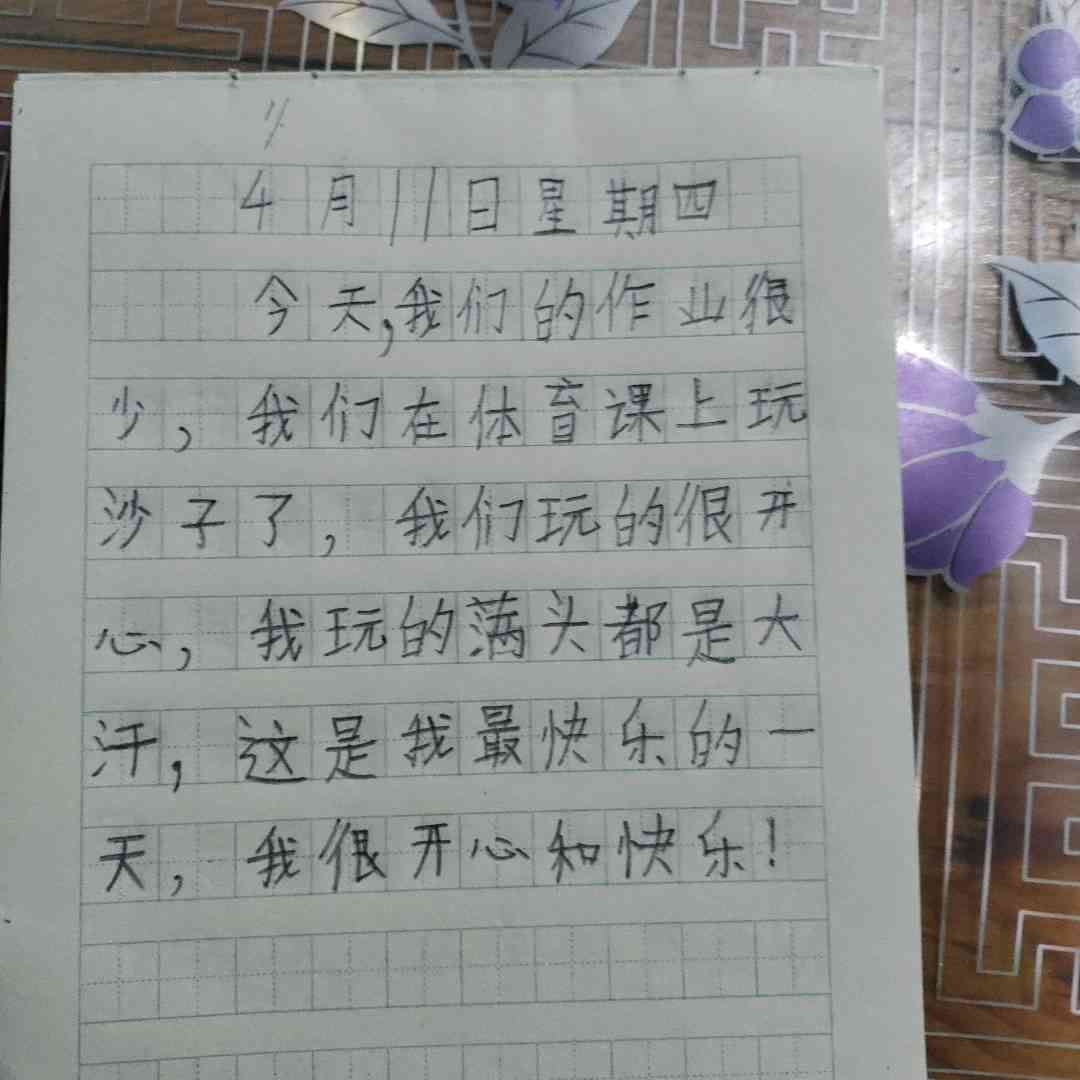 4月11日星期四
今天,我们的作业很
少,我们在体育课上玩
沙子了,我们玩的很开
心,我玩的满头都是大
汗,这是我最快乐的一
天,我很开心和快乐!